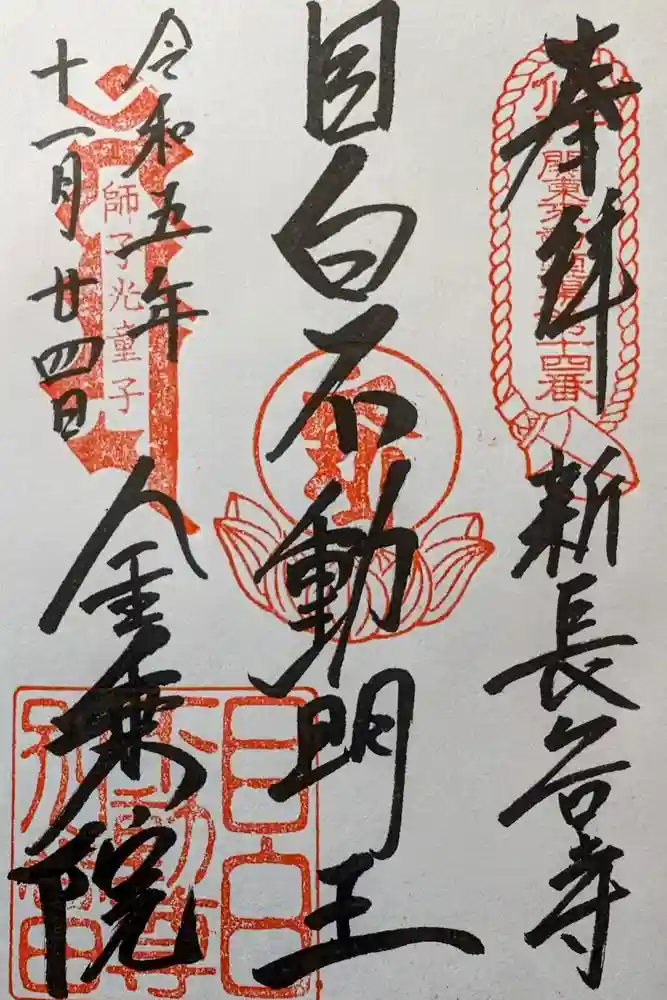 奉拝
関東三十六不動霊場第十四番
新長谷寺
目白不動明王
令和五年
十一月廿四日
師子光童子
金乗院
目白
不動尊